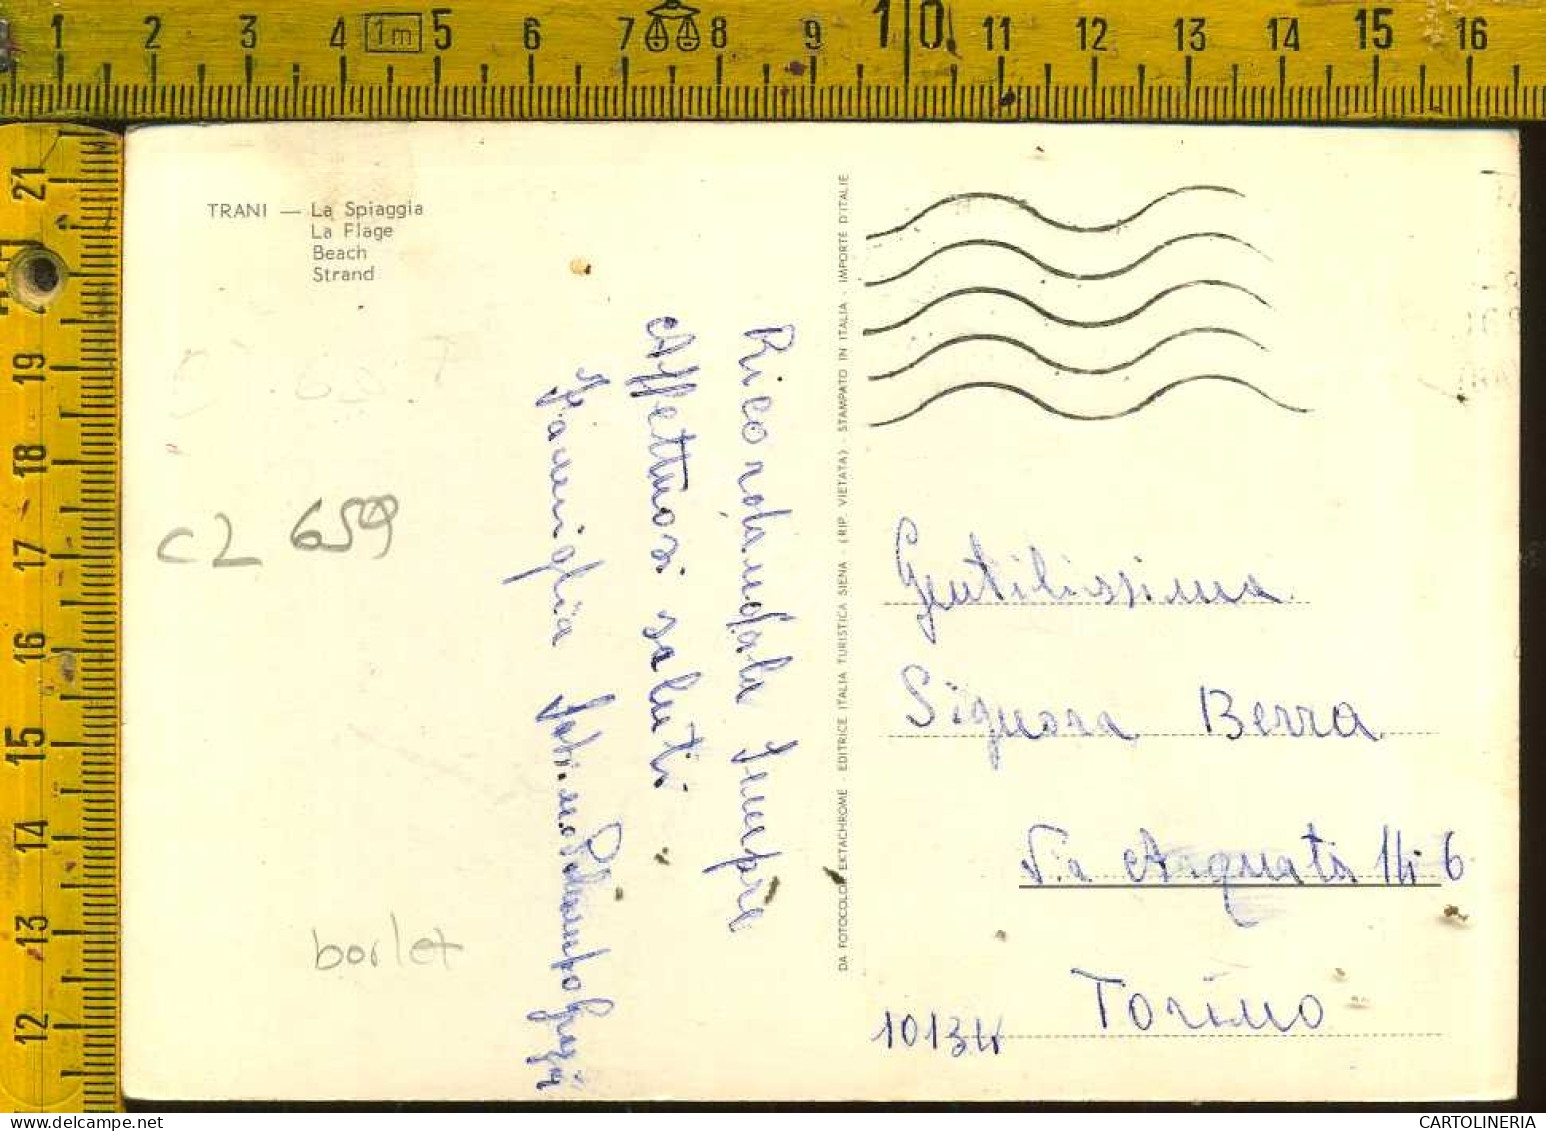 1 2 3 4 1m 5 6 7 8 9 10 11 12 13 14 15 16
21
19
18
17
16
15
14
13
12
TRANI — La Spiaggia
La Plage
Beach
Strand
CL 659
borlet
Ricordandola Sempre
Affettuosi saluti
Famiglia
DA FOTOCOLOR EKTACHROME - EDITRICE ITALIA TURISTICA SIENA - (RIP. VIETATA) - STAMPATO IN ITALIA - IMPORTÉ D'ITALIE
Gentilissima
Signora Berra
Via Arquata 14-6
10134 Torino
CARTOLINERIA